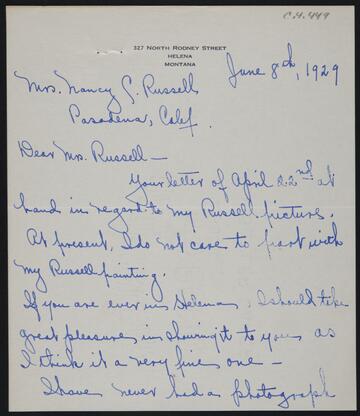 C.4.449
327 NORTH RODNEY STREET
HELENA
MONTANA
June 8th, 1929
Mrs. Nancy C. Russell
Pasadena, Calif.
Dear Mrs. Russell—
Your letter of April 22nd at
hand in regard to my Russell picture.
At present, I do not care to part with
my Russell painting.
If you are ever in Helena, I should take
great pleasure in showing it to you as
I think it a very fine one—
I have never had a photograph